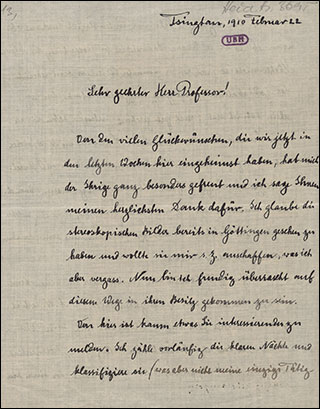 Tsingtau, 1910 Februar 22
UBH
Sehr geehrter Herr Professor!
Von den vielen Glückwünschen, die wir jetzt in
den letzten Wochen hier eingeheimst haben, hat mich
der Ihrige ganz besonders gefreut und ich sage Ihnen
meinen herzlichsten Dank dafür. Ich glaube die
stereoskopischen Bilder bereits in Göttingen gesehen zu
haben und wollte sie mir s. Z. anschaffen, was ich
aber vergass. Nun bin ich freudig überrascht auf
diesem Wege in ihren Besitz gekommen zu sein.
Von hier ist kaum etwas Sie interessierendes zu
melden. Ich zähle vorläufig die klaren Nächte und
klassifiziere sie (was aber nicht meine einzige Tätig